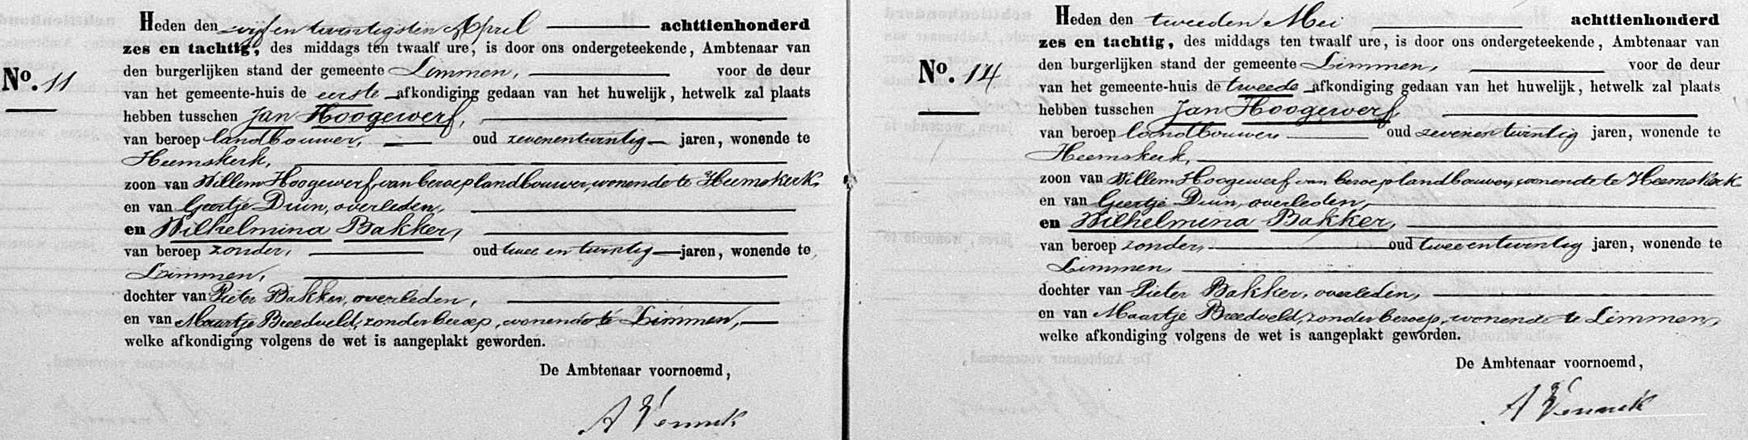 Heden den vijf en twintigsten April achttienhonderd
zes en tachtig, des middags ten twaalf ure, is door ons ondergeteekende, Ambtenaar van
No. 11
den burgerlijken stand der gemeente Limmen, voor de deur
van het gemeente-huis de eerste afkondiging gedaan van het huwelijk, hetwelk zal plaats
hebben tusschen Jan Hoogewerf,
van beroep landbouwer, oud zevenentwintig jaren, wonende te
Heemskerk,
zoon van Willem Hoogewerf, van beroep landbouwer, wonende te Heemskerk,
en van Geertje Duin, overleden,
en Wilhelmina Bakker,
van beroep zonder, oud twee en twintig jaren, wonende te
Limmen,
dochter van Pieter Bakker, overleden,
en van Maartje Breedveld, zonder beroep, wonende te Limmen,
welke afkondiging volgens de wet is aangeplakt geworden.
De Ambtenaar voornoemd,
Heden den tweeden Mei achttienhonderd
zes en tachtig, des middags ten twaalf ure, is door ons ondergeteekende, Ambtenaar van
No. 14
den burgerlijken stand der gemeente Limmen, voor de deur
van het gemeente-huis de tweede afkondiging gedaan van het huwelijk, hetwelk zal plaats
hebben tusschen Jan Hoogewerf,
van beroep landbouwer oud zevenentwintig jaren, wonende te
Heemskerk,
zoon van Willem Hoogewerf van beroep landbouwer, wonende te Heemskerk
en van Geertje Duin, overleden,
en Wilhelmina Bakker,
van beroep zonder, oud tweeentwintig jaren, wonende te
Limmen,
dochter van Pieter Bakker, overleden,
en van Maartje Breedveld, zonder beroep, wonende te Limmen,
welke afkondiging volgens de wet is aangeplakt geworden.
De Ambtenaar voornoemd,